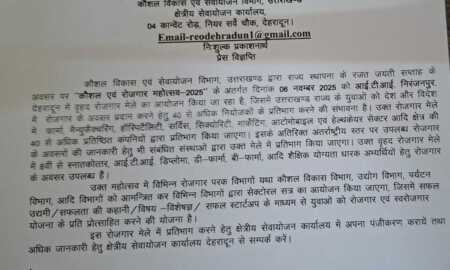 कौशल विकास एवं सेवायोजन विभाग, उत्तराखण्ड
क्षेत्रीय सेवायोजन कार्यालय,
04 कान्वेंट रोड, नियर सर्वे चौक, देहरादून।
Email-reodehradun1@gmail.com
निःशुल्क प्रकाशनार्थ
प्रेस विज्ञप्ति
कौशल विकास एवं सेवायोजन विभाग, उत्तराखण्ड द्वारा राज्य स्थापना के रजत जयंती सप्ताह के
अवसर पर "कौशल एवं रोजगार महोत्सव-2025" के अंतर्गत दिनांक 06 नवम्बर 2025 को आई.टी.आई. निरंजनपुर,
देहरादून में वृहद रोजगार मेले का आयोजन किया जा रहा है, जिसमें उत्तराखण्ड राज्य के युवाओं को देश और विदेश
में रोजगार के अवसर प्रदान करने हेतु 40 से अधिक नियोजकों के प्रतिभाग करने की सम्भावना है। उक्त रोजगार मेले
में फार्मा, मैन्युफैक्चरिंग, हॉस्पिटैलिटी, सर्विस, सिक्योरिटी, मार्केटिंग, आटोमोबाइल एवं हेल्थकेयर सेक्टर आदि क्षेत्र की
40 से अधिक प्रतिष्ठित कंपनियों द्वारा प्रतिभाग किया जाएगा। इसके अतिरिक्त अंतर्राष्ट्रीय स्तर पर उपलब्ध रोजगार
के अवसरों की जानकारी हेतु भी संबंधित संस्थाओं द्वारा उक्त मेले में प्रतिभाग किया जाएगा। उक्त वृहद रोजगार मेले
में 8वीं से स्नातकोत्तर, आई.टी.आई. डिप्लोमा, डी–फार्मा, बी–फार्मा, आदि शैक्षिक योग्यता धारक अभ्यर्थियों हेतु रोजगार
के अवसर उपलब्ध है।
उक्त महोत्सव में विभिन्न रोजगार परक विभागों यथा कौशल विकास विभाग, उद्योग विभाग, पर्यटन
विभाग, आदि विभागों को आमन्त्रित कर विभिन्न विभागों द्वारा सेक्टोरल सत्र का आयोजन किया जाएगा, जिसमे सफल
उद्यमी/सफलता की कहानी/विषय –विशेषज्ञ/ सफल स्टार्टअप के माध्यम से युवाओं को रोजगार एवं स्वरोजगार
योजना के प्रति प्रोत्साहित करने की योजना है।
इस रोजगार मेले में प्रतिभाग करने हेतु क्षेत्रीय सेवायोजन कार्यालय में अपना पंजीकरण करायें तथा
अधिक जानकारी हेतु क्षेत्रीय सेवायोजन कार्यालय देहरादून से सम्पर्क करें।